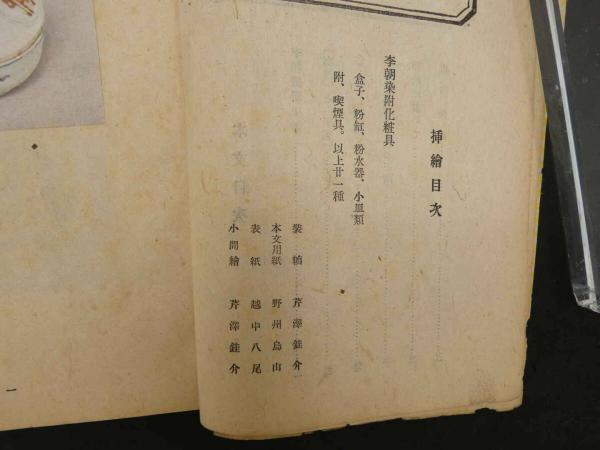 挿繪目次
李朝染附化粧具
盒子、粉缸、粉水器、小皿類
附、喫煙具。以上廿一種
裝幀 芹澤銈介
本文用紙 野州烏山
表紙 越中八尾
小間繪 芹澤銈介
一